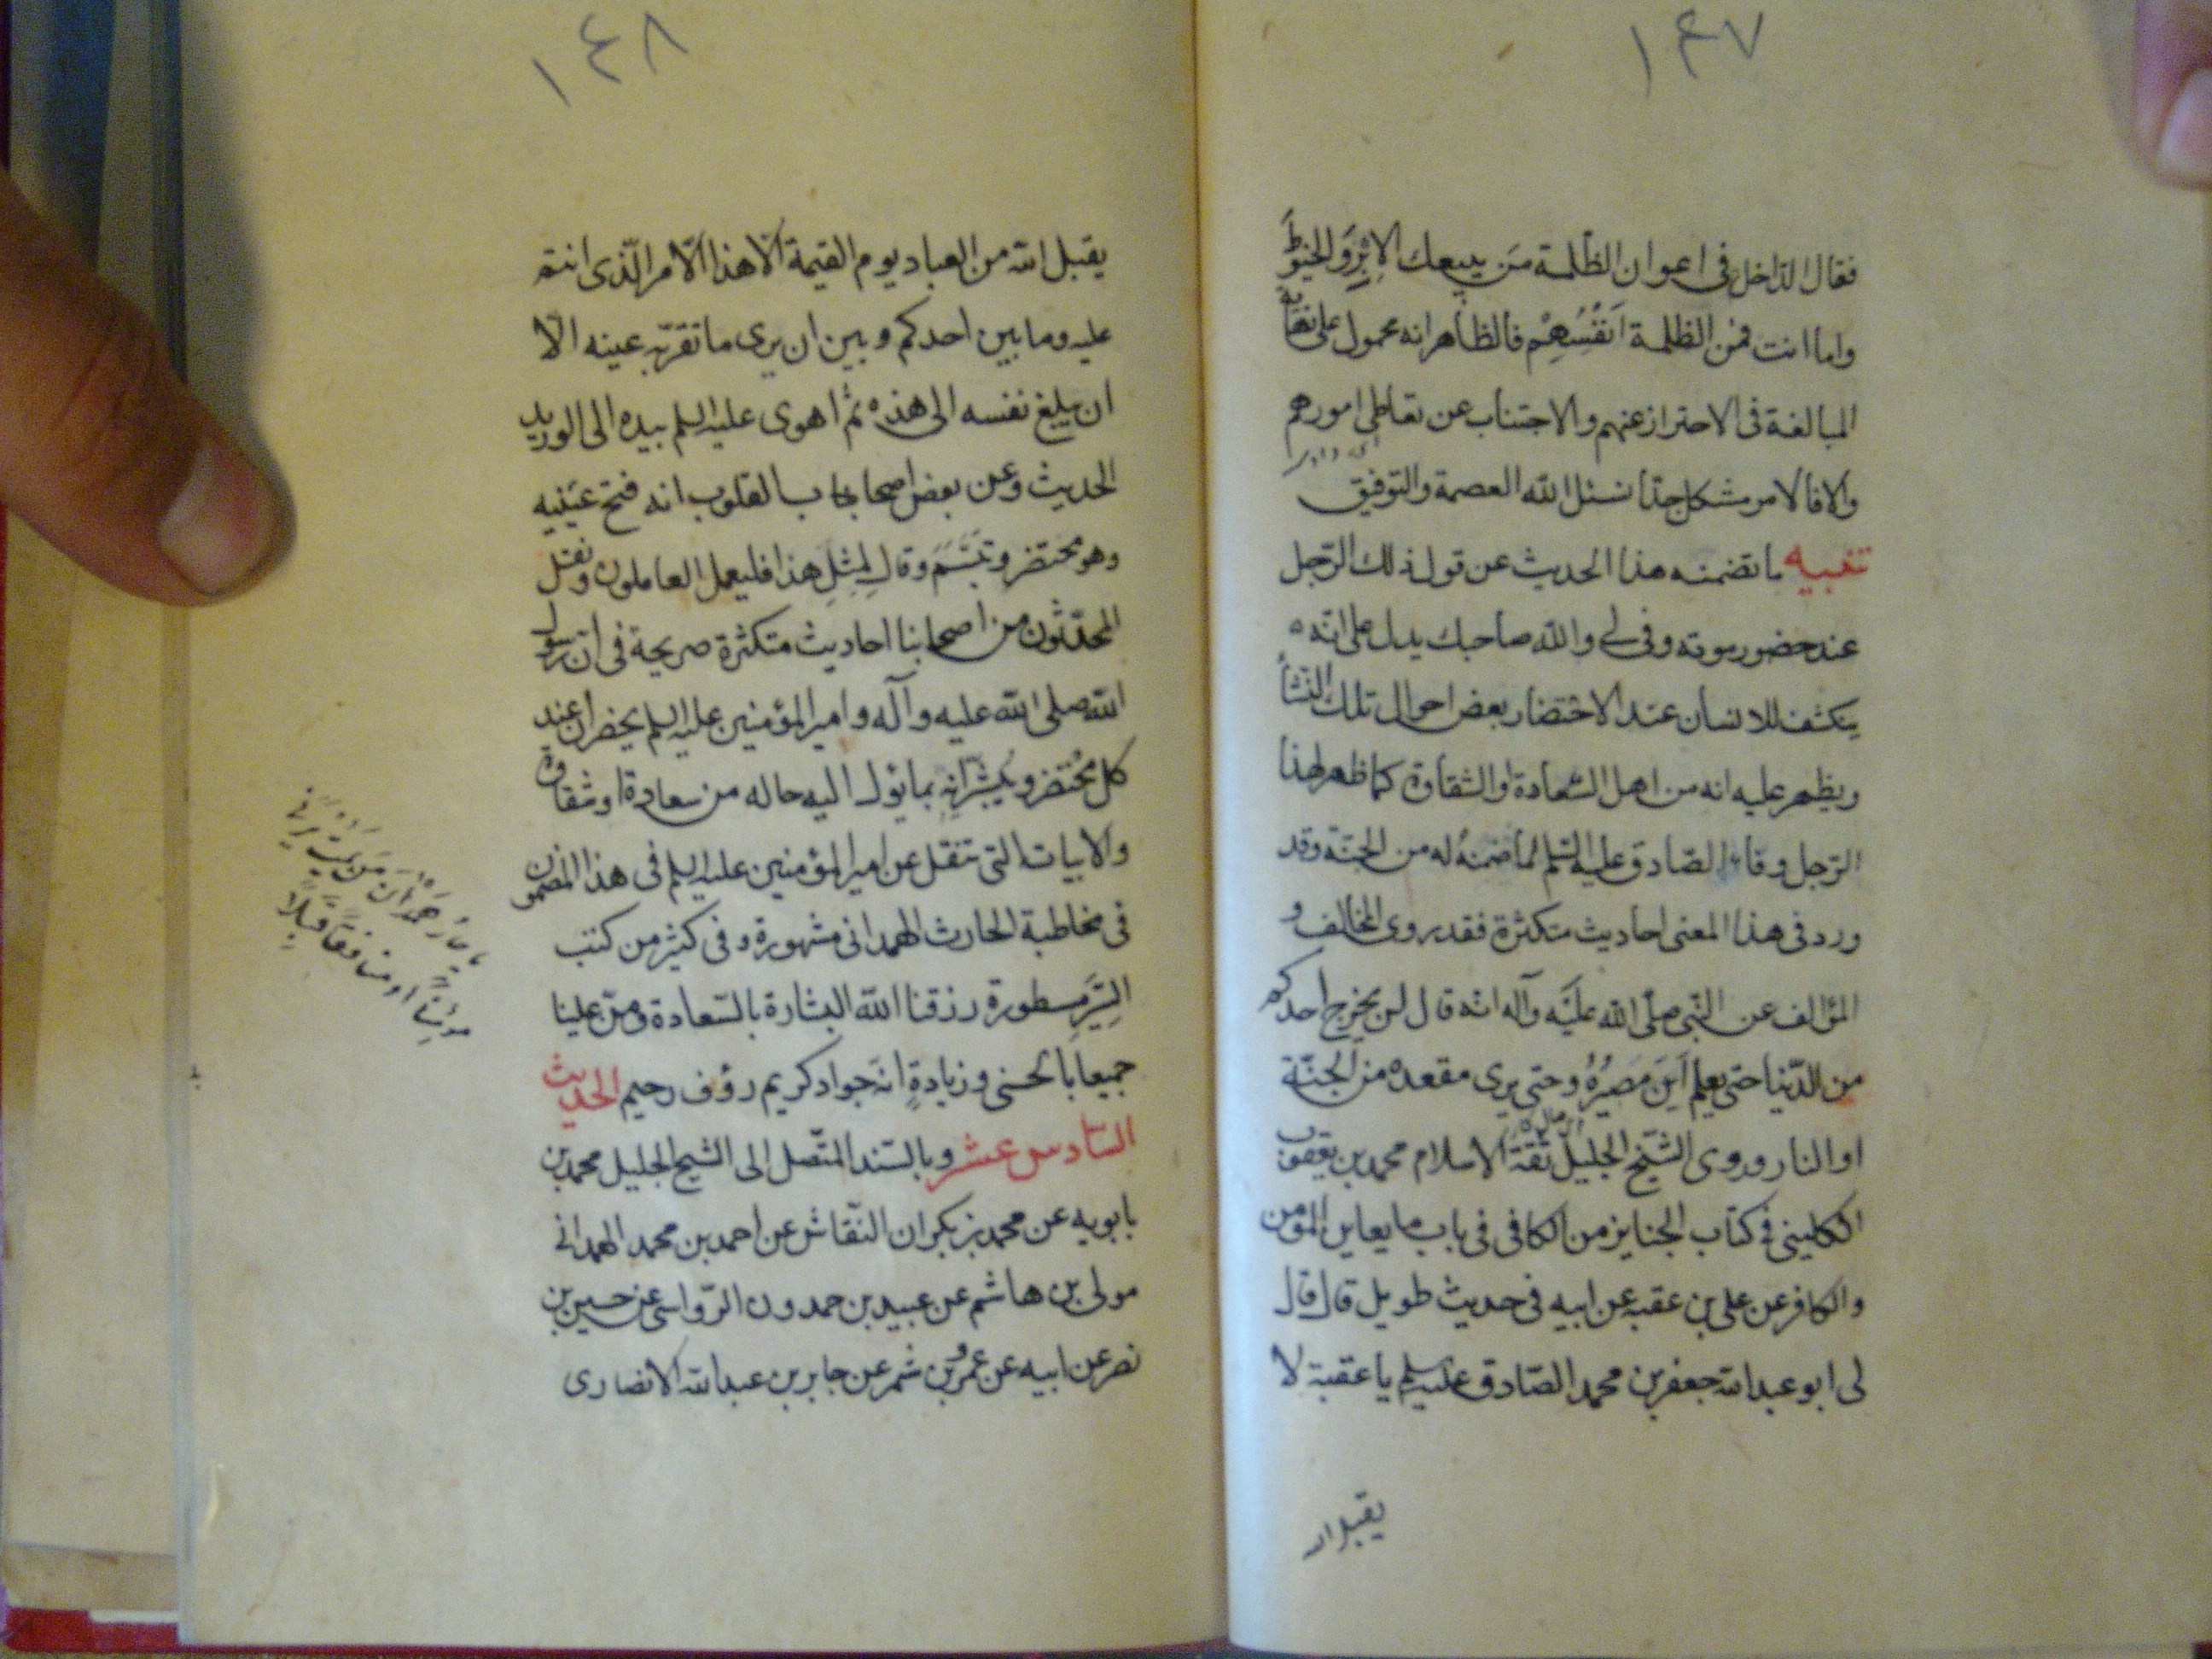 ١٤٧
فقال الداخل فى اعوان الظلمة من يبيعك الابر والخيوط
واما انت فمن الظلمة انفسهم فالظاهر انه محمول على نهاية
المبالغة فى الاحتراز عنهم والاجتناب عن تعاطى امورهم
والا فالامر مشكل جدا نسئل الله العصمة والتوفيق
تنبيه ما تضمنه هذا الحديث عن قول ذلك الرجل
عند حضور موته وفى لى والله صاحبك يدل على انه
ينكشف للانسان عند الاحتضار بعض احوال تلك النشأ
ويظهر عليه انه من اهل السعادة او الشقاوة كما ظهر لهذا
الرجل وفاء الصادق عليه السلم لما ضمنه له من الجنة وقد
ورد فى هذا المعنى احاديث متكثرة فقد روى المخالف و
المؤالف عن النبى صلى الله عليه وآله انه قال لن يخرج احدكم
من الدنيا حتى يعلم اين مصيره وحتى يرى مقعده من الجنة
او النار وروى الشيخ الجليل ثقة الاسلام محمد بن يعقوب
الكلينى فى كتاب الجنايز من الكافى فى باب ما يعاين المؤمن
والكافر عن على بن عقبه عن ابيه فى حديث طويل قال قال
لى ابو عبد الله جعفر بن محمد الصادق عليه السلم يا عقبة لا
١٤٨
يقبل الله من العباد يوم القيمة الا هذا الامر الذى انتم
عليه وما بين احدكم وبين ان يرى ما تقر به عينه الا
ان يبلغ نفسه الى هذه ثم اهوى عليه السلم بيده الى الوريد
الحديث وعن بعض اصحاب القلوب انه فتح عينيه
وهو محتضر وتبسم وقال لمثل هذا فليعمل العاملون ونقل
المحدثون من اصحابنا احاديث متكثرة صريحة فى ان رسول
الله صلى الله عليه وآله وامير المؤمنين عليه السلم يحضران عند
كل محتضر ويبشرانه بما يؤل اليه حاله من سعادة او شقاوة
والابيات التى تنقل عن امير المؤمنين عليه السلم فى هذا المضمون
فى مخاطبة الحارث الهمدانى مشهورة وفى كثير من كتب
السير مسطورة رزقنا الله البشارة بالسعادة ومن علينا
جميعا بالحسنى وزيادة انه جواد كريم رؤف رحيم الحديث
السادس عشر وبالسند المتصل الى الشيخ الجليل محمد بن
بابويه عن محمد بن بكران النقاش عن احمد بن محمد الهمدانى
مولى بن هاشم عن عبيد بن حمدون الرواسى عن حسين بن
نصر عن ابيه عن عمرو بن شمر عن جابر بن عبد الله الانصارى
يا حار همدان من يمت يرنى
مؤمنا او منافقا قبلا